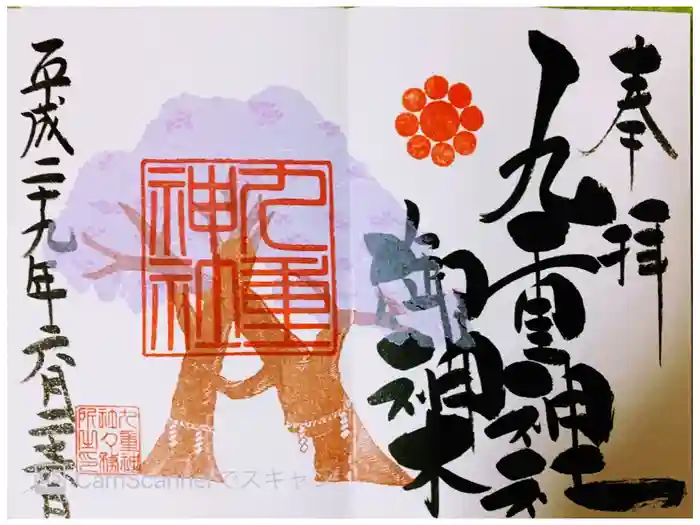 奉拝
九重神社
御神木
九重
神社
平成二十九年六月二十四日
九重神
社々務
所之印
CamScannerでスキャン